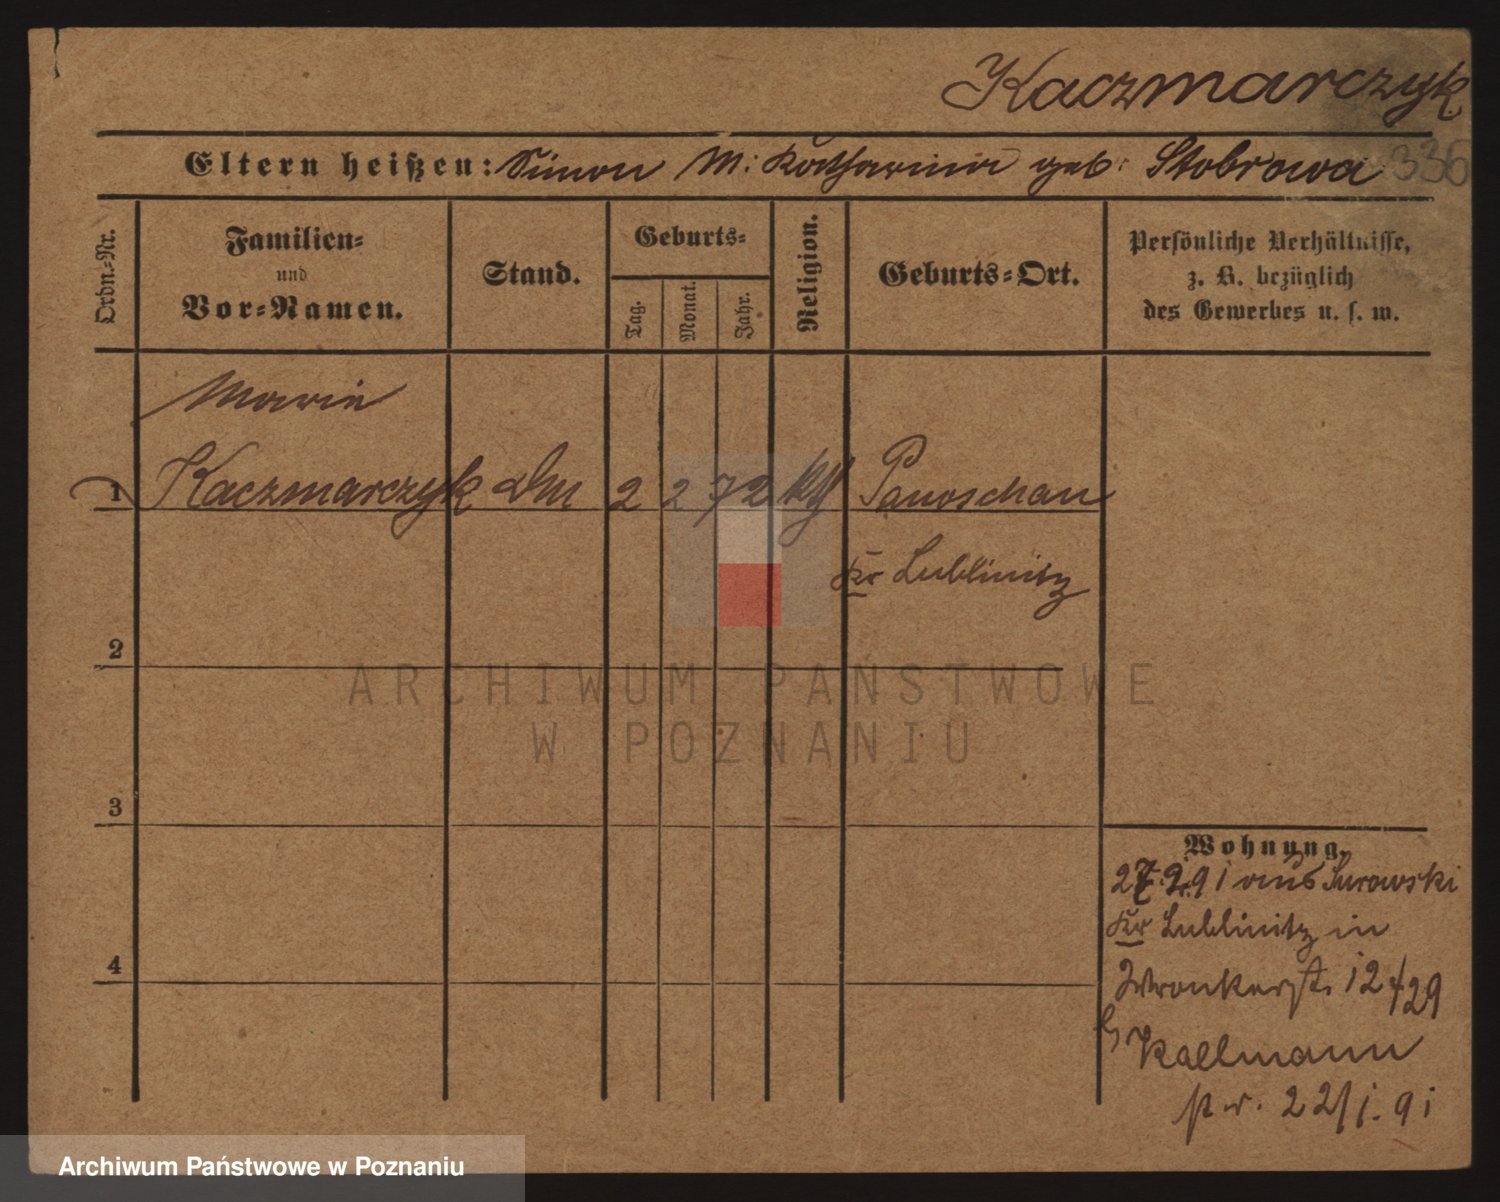 Kaczmarczyk
Eltern heißen: Simon M: Katharina geb: Stobrowa 336
Ordn.-Nr.
Familien-
und
Vor-Namen.
Stand.
Geburts-
Tag.
Monat.
Jahr.
Religion.
Geburts-Ort.
Persönliche Verhältnisse,
z. B. bezüglich
des Gewerbes u. s. w.
Marie
1 Kaczmarczyk 2 2 72 Panoschau
Kr Lublinitz
2
3
4
Wohnung.
27.2.91 aus Surowski
Kr Lublinitz in
Wronkerst. 12 /29
Kallmann
22/1.91
ARCHIWUM PAŃSTWOWE
W POZNANIU
Archiwum Państwowe w Poznaniu